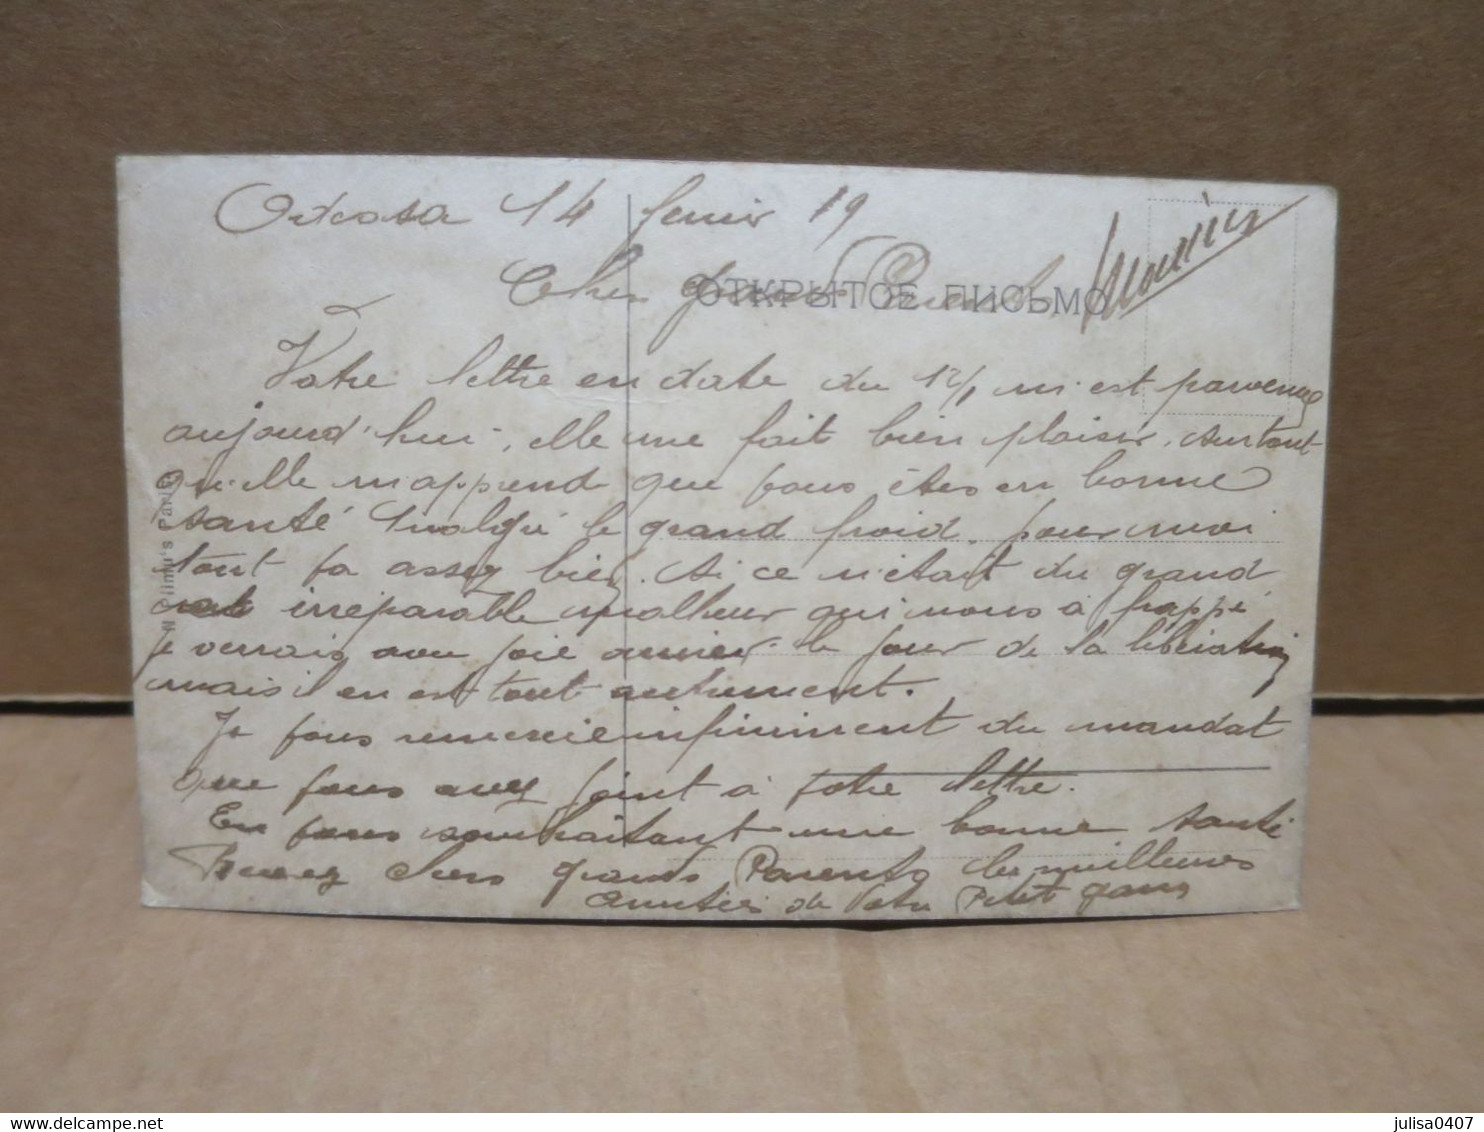 Odessa 14 fevrier 19
Chers grands Parents
ОТКРЫТОЕ ПИСЬМО
Maurice
Votre lettre en date du 12/1 m'est parvenue
aujourd'hui, elle me fait bien plaisir, surtout
qu'elle m'apprend que vous êtes en bonne
santé malgré le grand froid. pour moi
tout va assez bien. Si ce n'était du grand
et irréparable malheur qui nous a frappé
je verrais avec joie arriver le jour de la libération
mais il en est tout autrement.
Je vous remercie infiniment du mandat
que vous avez joint à votre lettre.
En vous souhaitant une bonne santé
Recevez chers grands Parents les meilleures
amitiés de Votre Petit gars
Paris
julisa0407